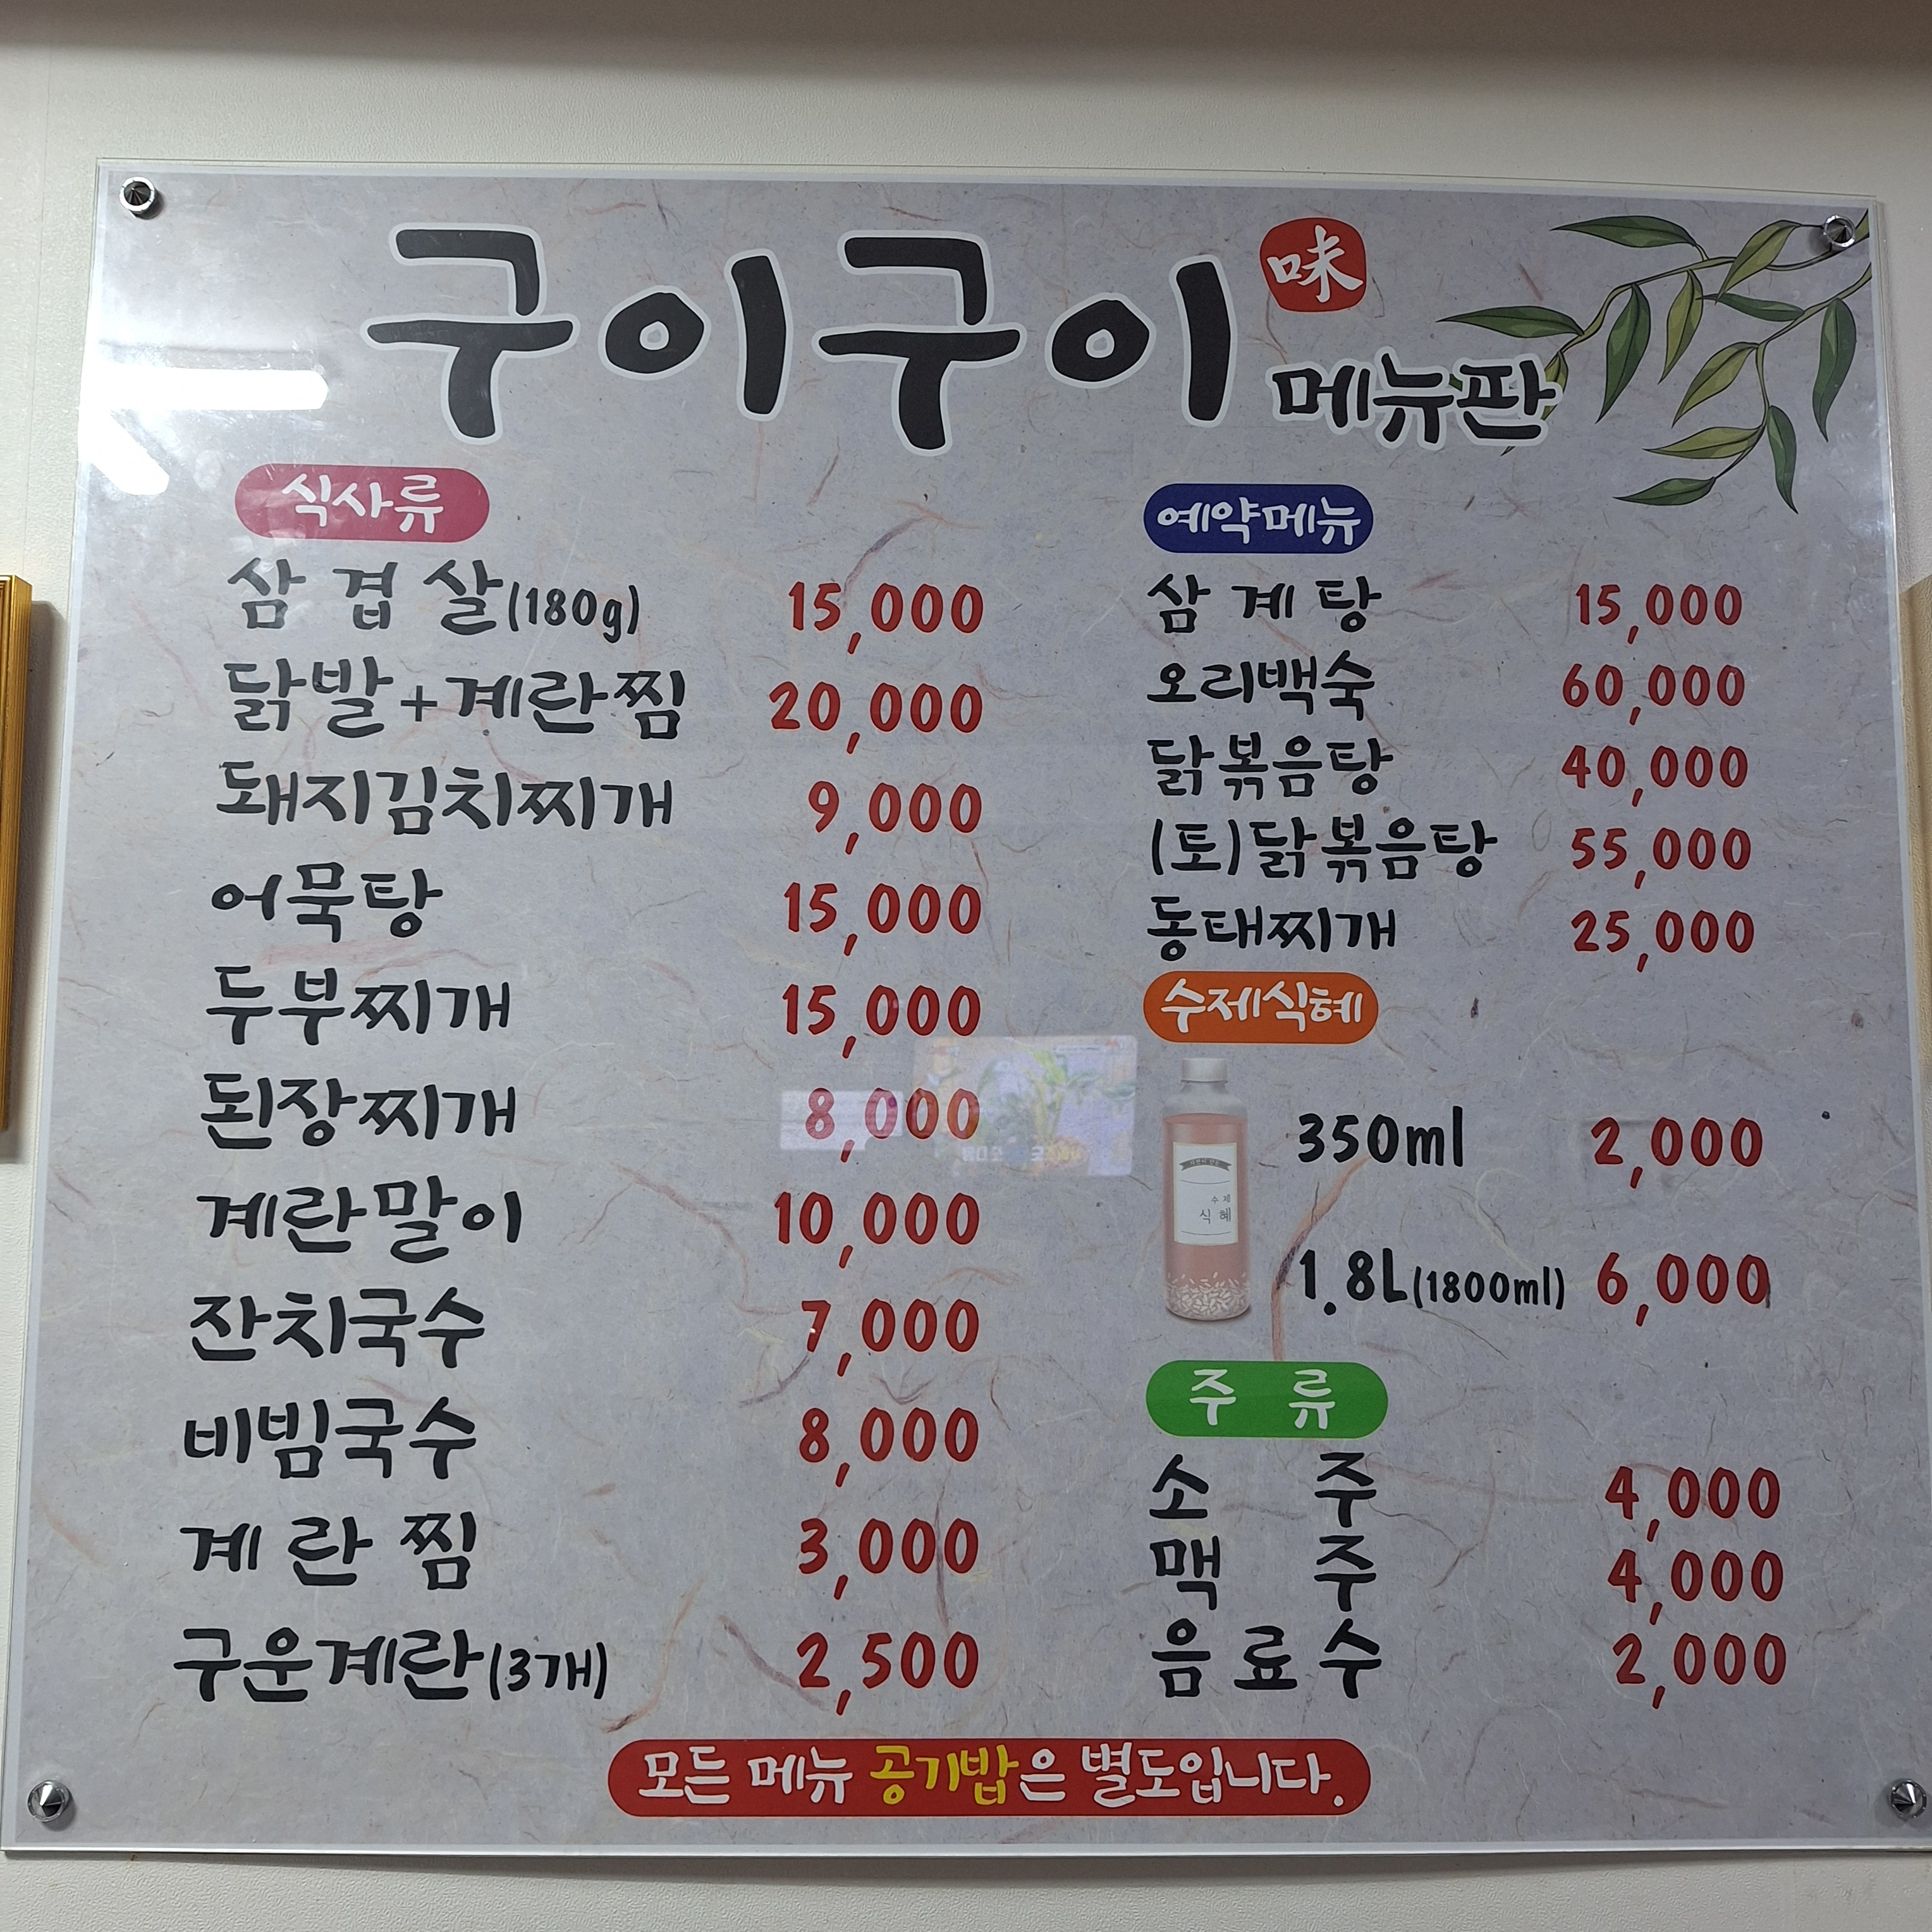 구이구이 味
메뉴판
식사류
삼겹살(180g) 15,000
닭발+계란찜 20,000
돼지김치찌개 9,000
어묵탕 15,000
두부찌개 15,000
된장찌개 8,000
계란말이 10,000
잔치국수 7,000
비빔국수 8,000
계란찜 3,000
구운계란(3개) 2,500
예약메뉴
삼계탕 15,000
오리백숙 60,000
닭볶음탕 40,000
(토)닭볶음탕 55,000
동태찌개 25,000
수제식혜
수제
식혜
350ml 2,000
1.8L(1800ml) 6,000
주류
소주 4,000
맥주 4,000
음료수 2,000
모든 메뉴 공기밥은 별도입니다.